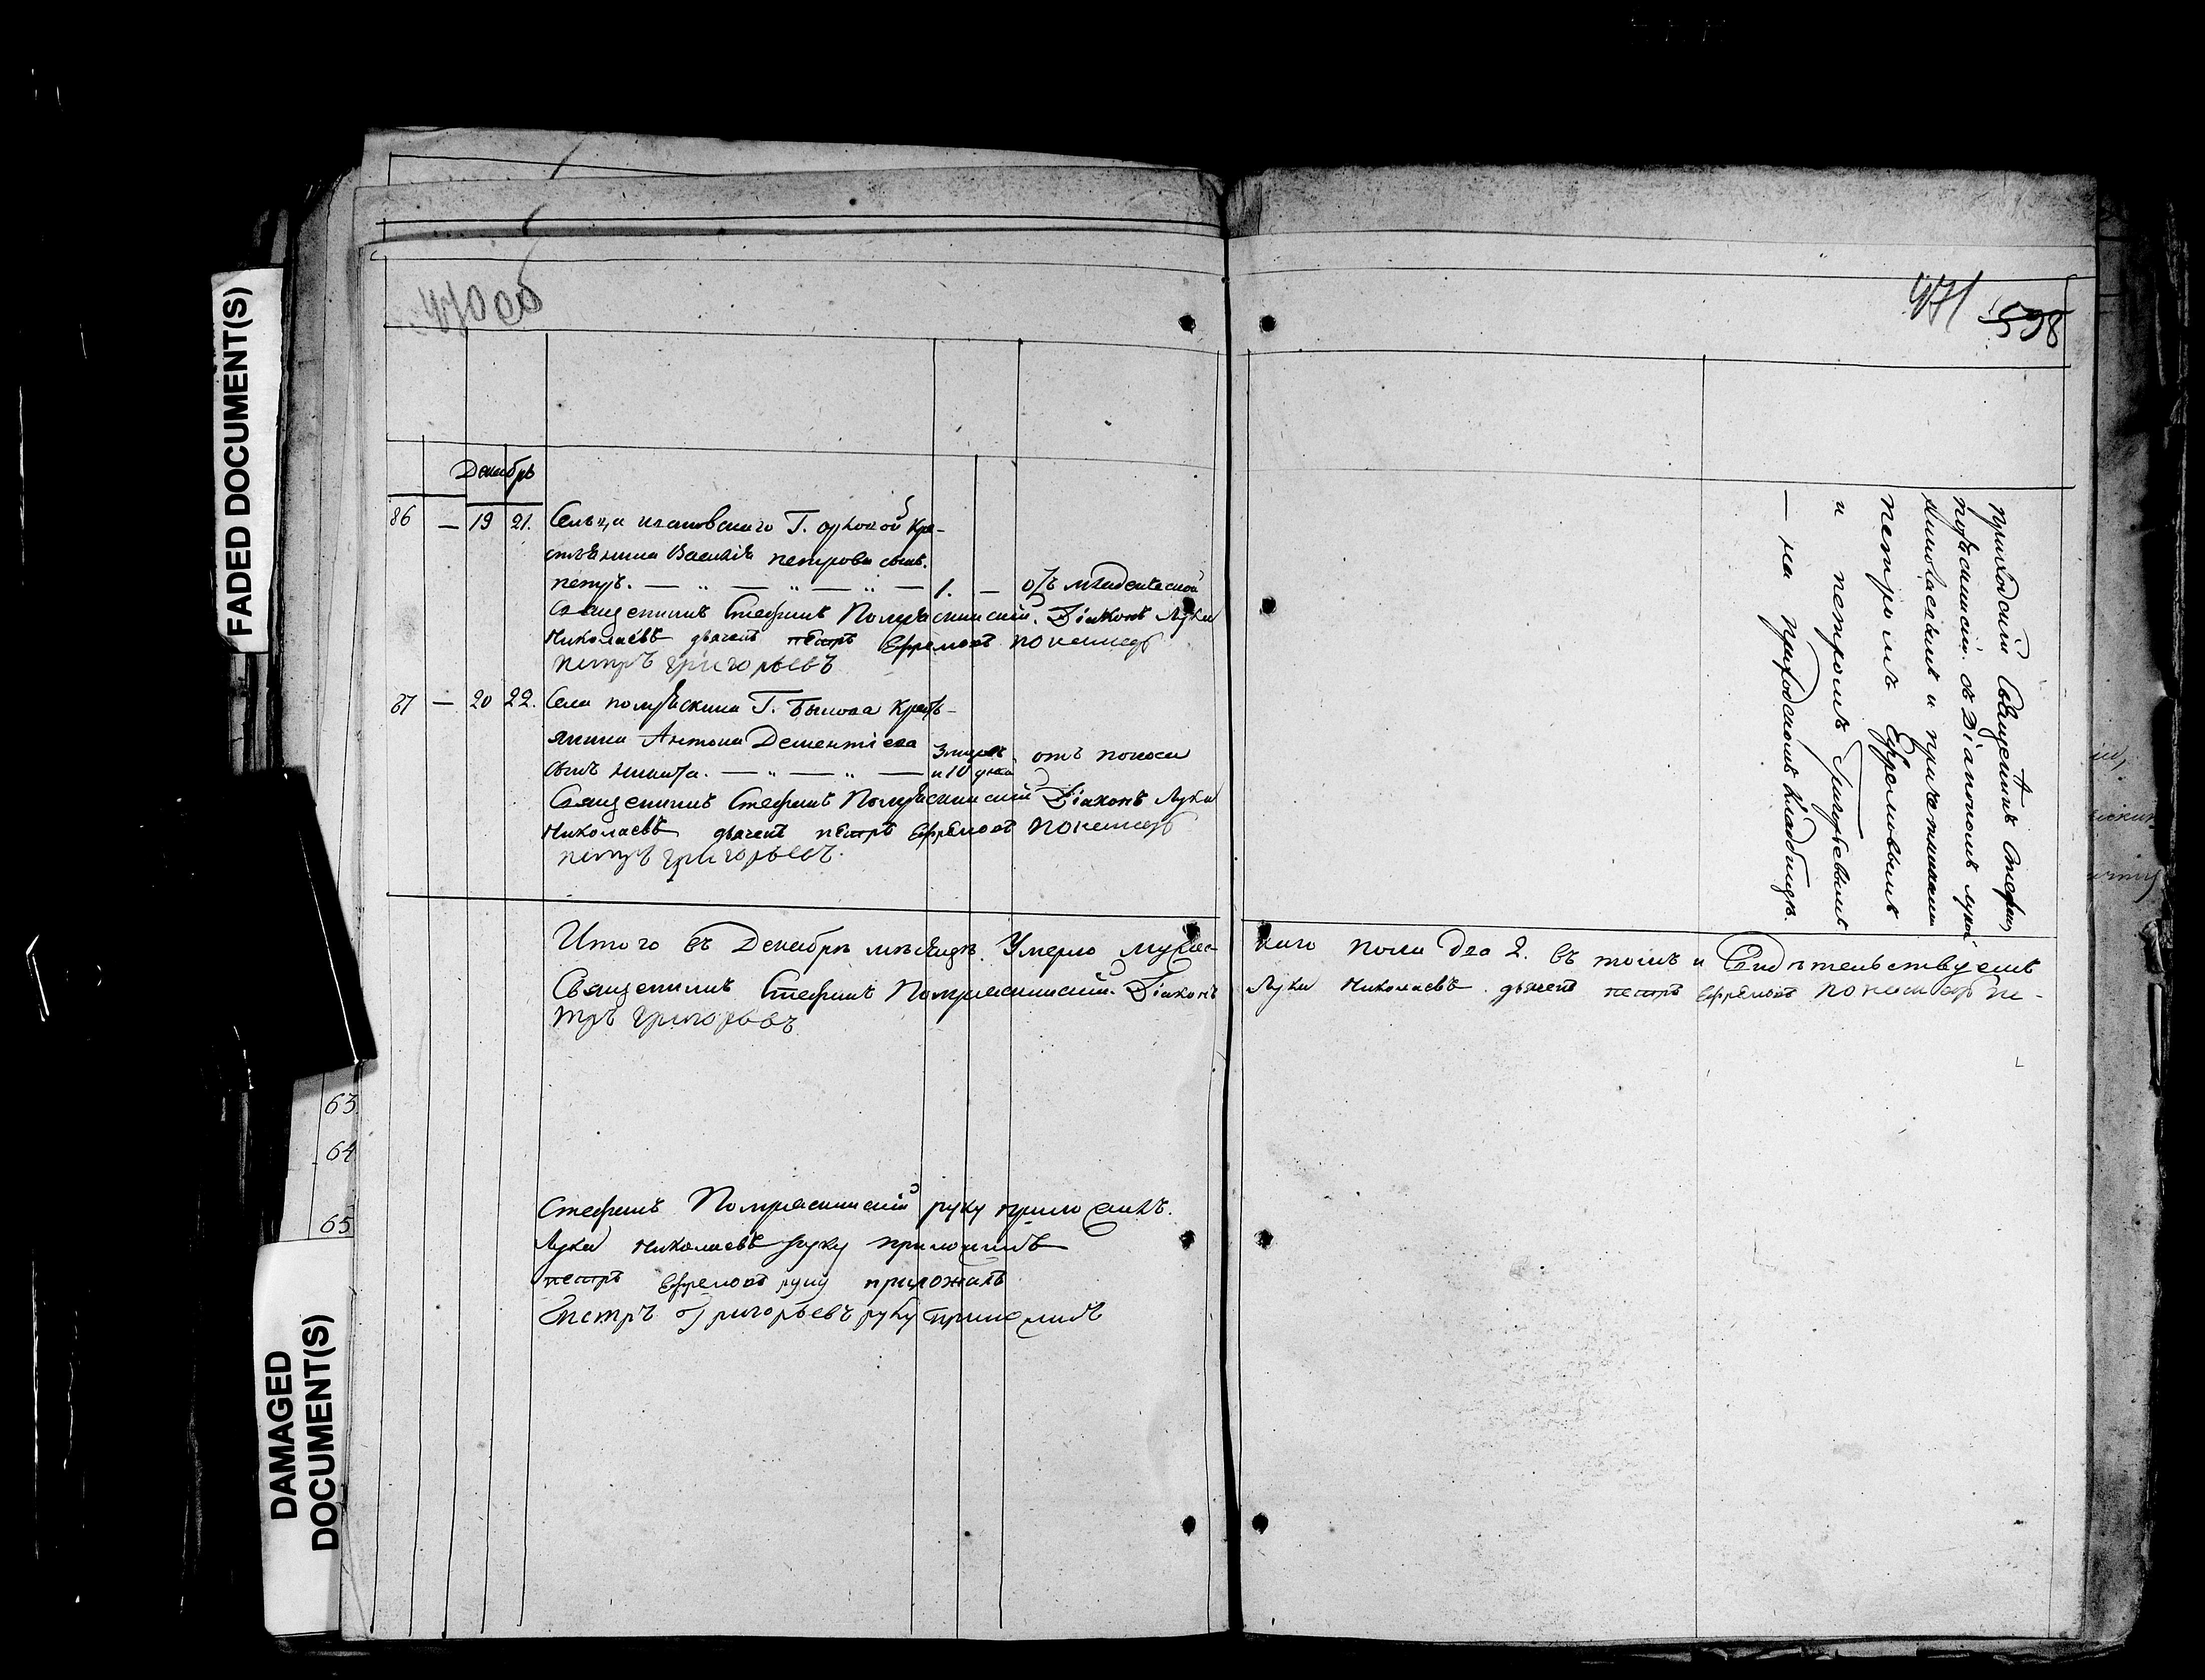 470 об
471 598
Декабрь
86 — 19 21. Сельца Г. Кре-
стьянина Василія петрова сынъ
петръ. — „ — „ — „ — 1. — отъ младенческой
Священникъ Стефанъ Полуяскинскій. Діаконъ Лука
Николаевъ дьячекъ петръ Ефремовъ пономарь
петръ григорьевъ
87 — 20 22. Села полуяскина Г. Бы Кресть-
янина Антона Дементіева
сынъ никита. — „ — „ — 3 и 10 дней отъ поноса
Священникъ Стефанъ Полуяскинскій Діаконъ Лука
Николаевъ дьячекъ петръ Ефремовъ Пономарь
петръ григорьевъ.
Приходскій Священникъ Стефанъ
Полуяскинскій съ Діакономъ Лукой
Николаевымъ и причетниками
петромъ Ефремовымъ
и петромъ Григорьевымъ
— на приходскомъ кладбищѣ.
Итого въ Декабрѣ мѣсяцѣ. Умерло мужес-
каго пола два 2. въ томъ и Свидѣтельствуемъ
Священникъ Стефанъ Полуяскинскій. Діаконъ
Лука Николаевъ. дьячекъ петръ Ефремовъ пономарь пе-
тръ григорьевъ
Стефанъ Полуяскинскій руку приложилъ.
Лука Николаевъ руку приложилъ
петръ Ефремовъ руку приложилъ
Петръ Григорьевъ руку приложилъ
63.
64
65
FADED DOCUMENT(S)
DAMAGED
DOCUMENT(S)